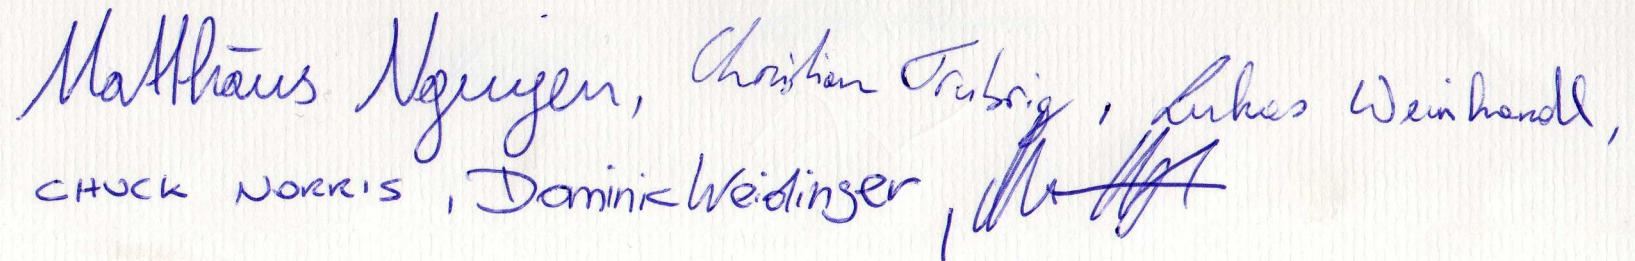 Matthäus Nguyen, Christian Trubrig, Lukas Weinhandl,
CHUCK NORRIS, Dominik Weidinger,